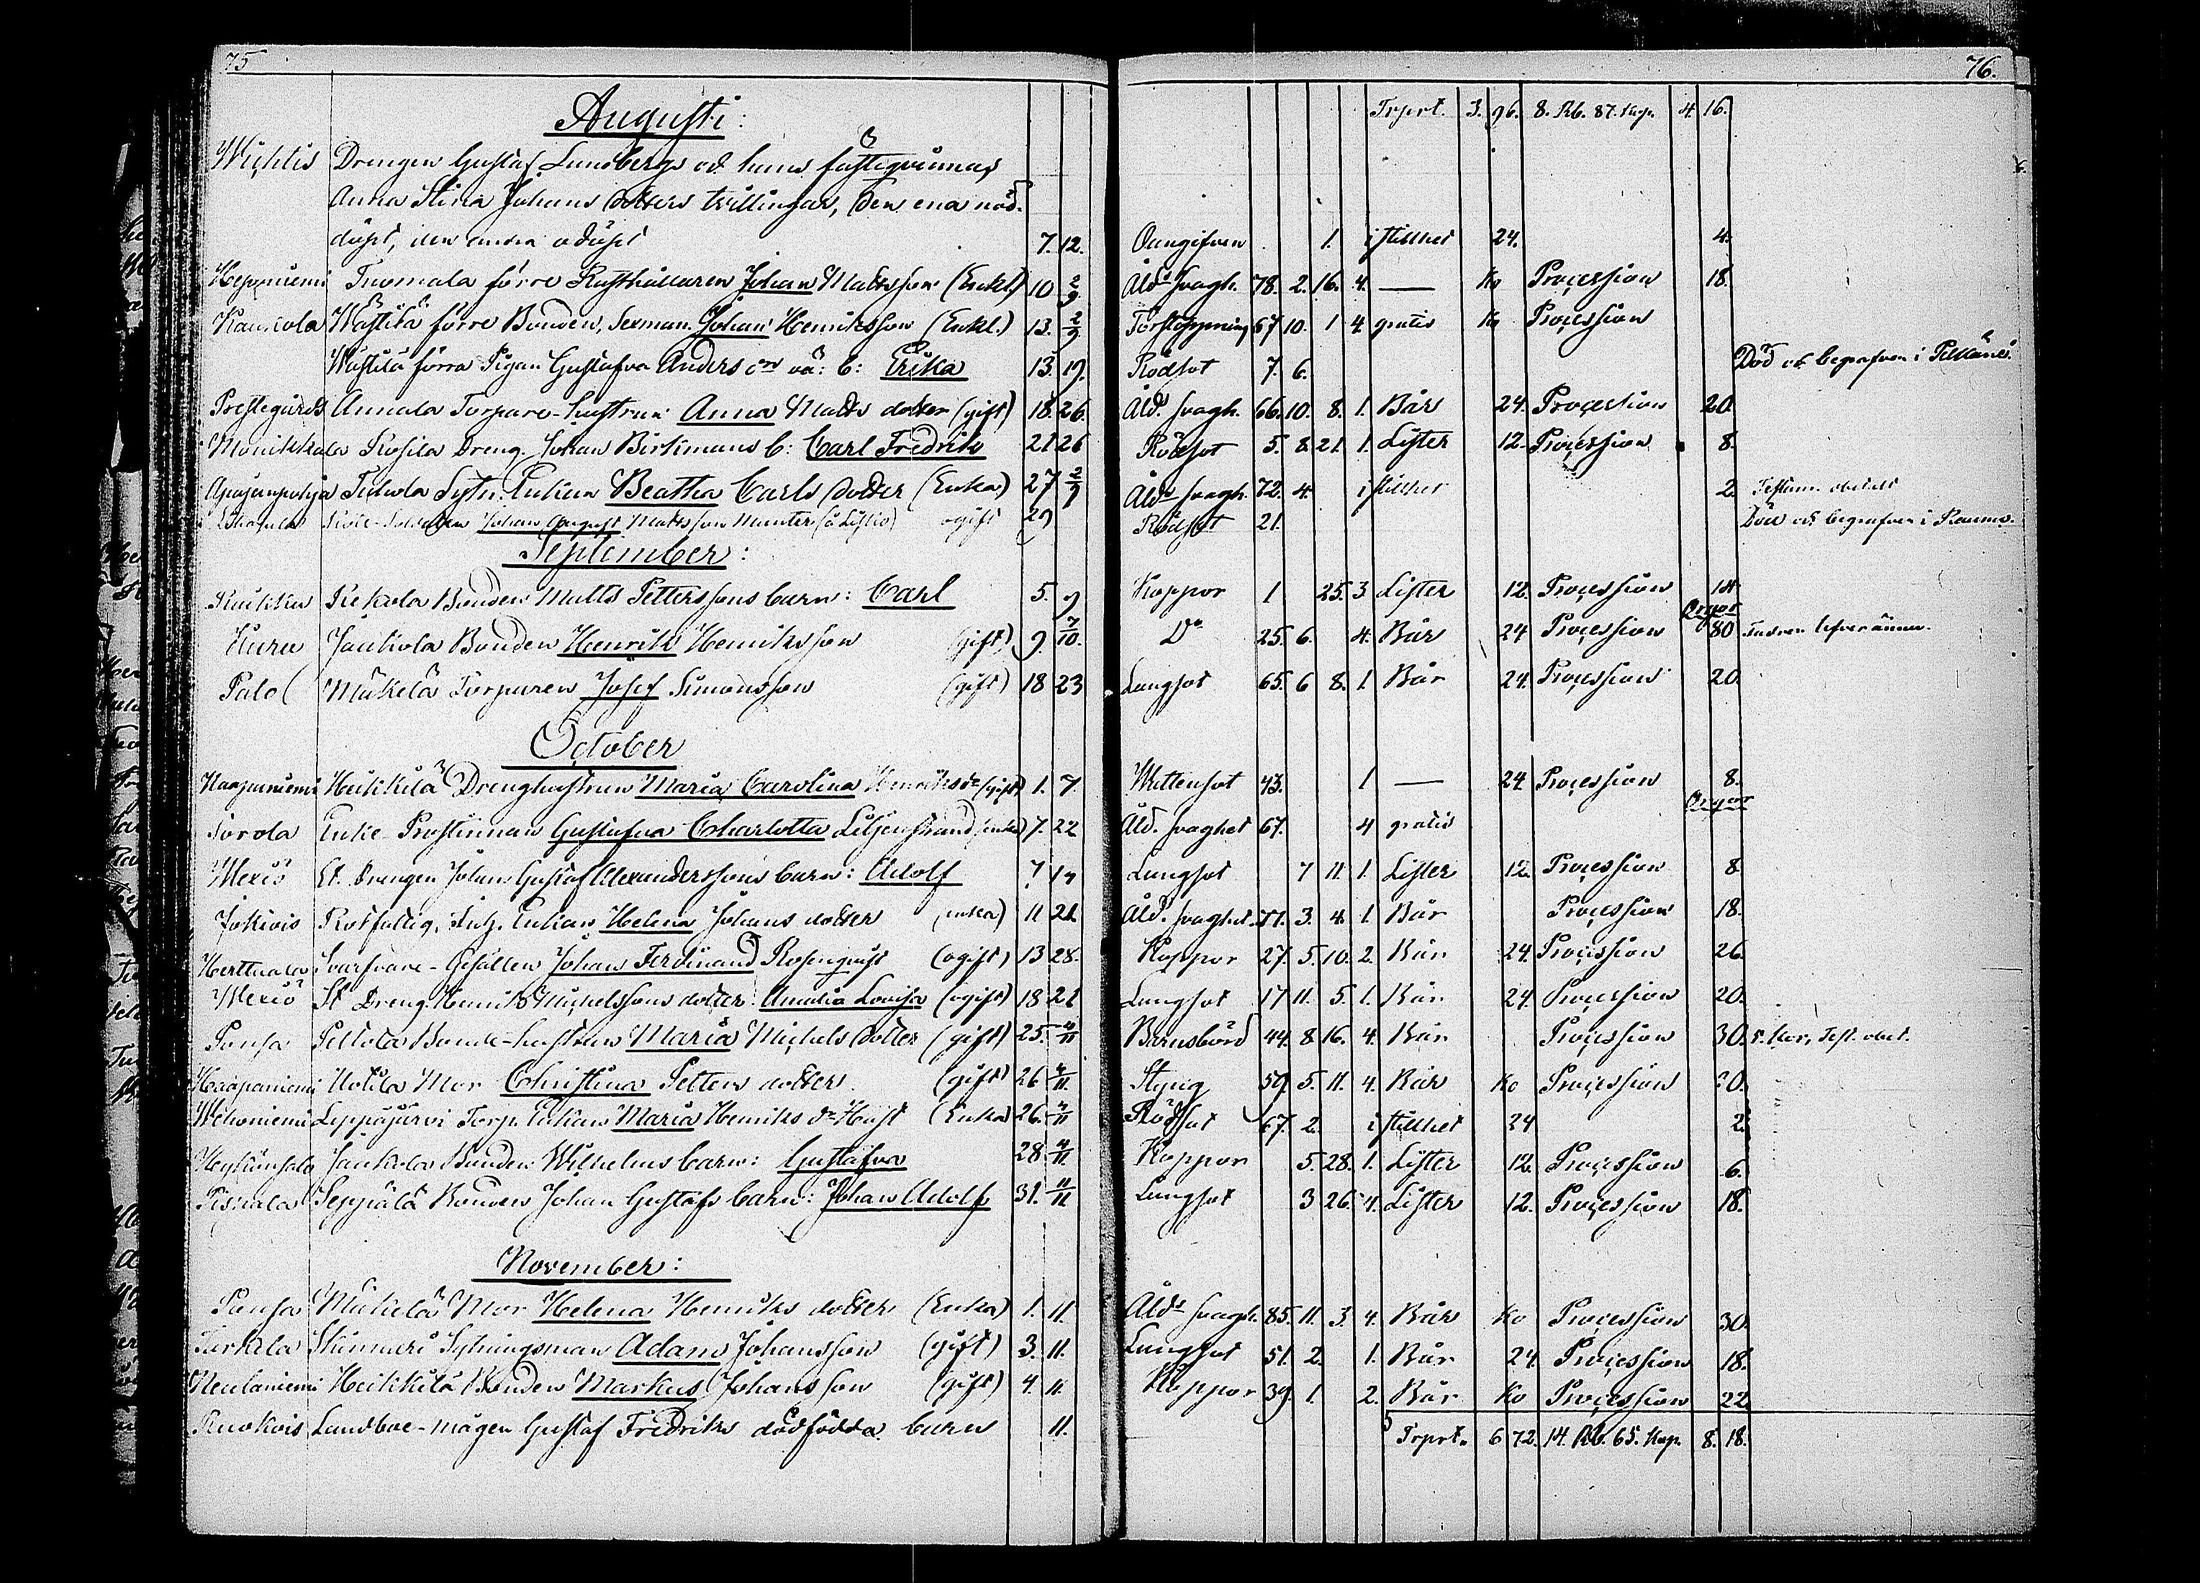 75
Augusti:
Wichtis Drengen Gustaf Lundbergs och hans fästeqvinnas
Anna Stina Johans dotters tvillingar, den ena nöd-
döpt, den andra odöpt 7. 12.
Tuomala förre Rusthållaren Johan Mattsson (Enkl.) 10 2/9
Wästilä förre Bonden, Sexman Johan Henriksson (Enkl.) 13. 2/9
Wästilä förra Pigan Gustafva Anders oä: b: Erika 13. 19.
Prestegårds Annala Torpare-hustrun Anna Matts dotter (gift) 18. 26.
Dreng. Johan Birkmans b: Carl Fredrik 21 26
Enkan Beatha Carls dotter (Enka) 27 2/9
Johan August Mattsson Munter ogift 29
September:
Bonden Matts Petterssons barn: Carl 5. 9
Jaukola Bonden Henrik Henriksson (gift) 9. 7/10.
Palo Mäkelä Torparen Josef Simonsson (gift) 18 23
October
Haapaniemi Heikkilä Drenghustrun Maria Carolina (gift) 1. 7.
Enke Prostinnan Gustafva Charlotta Liljenstrand 7. 22
Mexiö St. Drengen Johan Gustaf Alexanderssons barn: Adolf 7 17
Jokiois Enkan Helena Johans dotter (enka) 11 21
Herttuala Svarfvare-Gesällen Johan Ferdinand Rosenqvist (ogift) 13 28.
Mexiö St Dreng Henrik Michelssons dotter Amalia Lovisa (ogift) 18 21
Ponsa Peltola Bonde-hustrun Maria Michels dotter (gift) 25. 4/11
Haapaniemi Uotila Mor Christina Petters dotter (gift) 26 4/11
Leppäjärvi Torp. Enkan Maria Henriks (Enka) 26. 4/11
Jaukola Bonden Wilhelms barn: Gustafva 28 4/11
Seppälä Bonden Johan Gustafs barn: Johan Adolf 31. 11/11
November:
Ponsa Mäkelä Mor Helena Henriks dotter (Enka) 1. 11.
Sytningsman Adam Johansson (gift) 3. 11.
Neulaniemi Heikkilä Bonden Markus Johansson (gift) 4. 11.
Landboe-mågen Gustaf Fredriks dödfödda barn 11.
76.
Trprt. 3. 96. 8. Rb. 87. Kop. 4. 16.
Oangifven 1. i stillhet 24. 4.
Åld. svagh. 78. 2. 16. 4. — Ko Procession 18.
Förstoppning 67 10. 1 4. gratis Ko Procession
Rödsot 7. 6. Död och begrafven i
Åld. svagh. 66. 10. 8. 1. Bår 24. Procession 20.
Rödsot 5. 8. 21. 1. Lister 12. Procession 8.
Åld. svagh. 72. 4. i stillhet 2.
Rödsot 21. Död och begrafven i
Koppor 1 25. 3 Lister 12. Procession 14
Orgor
Do 25. 6. 4. Bår 24 Procession 80
Lungsot 65. 6 8. 1. Bår 24. Procession 20.
Wattensot 43. 1 — 24 Procession 8.
Orgor
Åld. svaghet 67. 4 gratis
Lungsot 7 11. 1. Lister 12. Procession 8
Åld. svaghet. 77. 3. 4. 1 Bår Procession 18.
Koppor 27. 5. 10. 2. Bår 24. Procession 26.
Lungsot 17 11. 5. 1. Bår 24. Procession 20.
Barnsbörd 44. 8. 16. 4. Bår Procession 30.
Styng 59. 5. 11. 4. Bår Ko Procession 20.
Rödsot 67. 2. i stillhet 24 2.
Koppor 5. 28. 1. Lister 12. Procession 6.
Lungsot 3 26. 4. Lister 12. Procession 18.
Åld. svagh. 85. 11. 3. 4. Bår Ko Procession 30.
Lungsot 51. 2. 1. Bår 24. Procession 18.
Koppor 39. 1. 2. Bår Ko Procession 22
Trprt. 6 72. 14. Rb. 65. Kop. 8. 18.